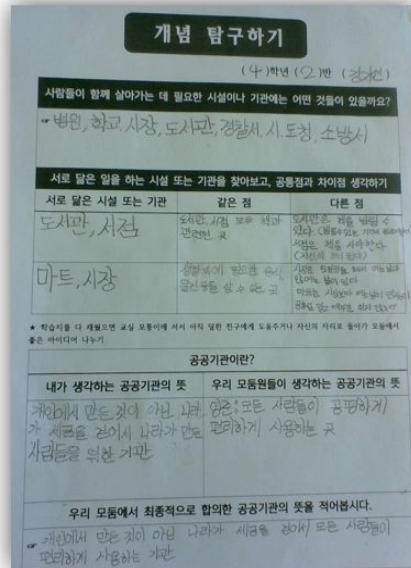 개념 탐구하기
(4)학년 (2)반 (
사람들이 함께 살아가는 데 필요한 시설이나 기관에는 어떤 것들이 있을까요?
☞ 병원, 학교, 시장, 도서관, 경찰서, 시.도청, 소방서
서로 닮은 일을 하는 시설 또는 기관을 찾아보고, 공통점과 차이점 생각하기
서로 닮은 시설 또는 기관
같은 점
다른 점
도서관, 서점
도서관, 서점 모두 책과
관련된 곳
도서관은 책을 빌릴 수
있다.
서점은 책을 사야한다.
마트, 시장
살 수 있는 곳
★ 학습지를 다 채웠으면 교실 모퉁이에 서서 아직 덜한 친구에게 도움주거나 자신의 자리로 돌아가 모둠에서
좋은 아이디어 나누기
공공기관이란?
내가 생각하는 공공기관의 뜻
우리 모둠원들이 생각하는 공공기관의 뜻
개인에서 만든 것이 아닌 나라
가 세금을 걷어서 나라가 만든
사람들을 위한 기관
모든 사람들이 공평하게
편리하게 사용하는 곳
우리 모둠에서 최종적으로 합의한 공공기관의 뜻을 적어봅시다.
☞ 개인에서 만든 것이 아닌 나라가 세금을 걷어서 모든 사람들이
편리하게 사용하는 기관